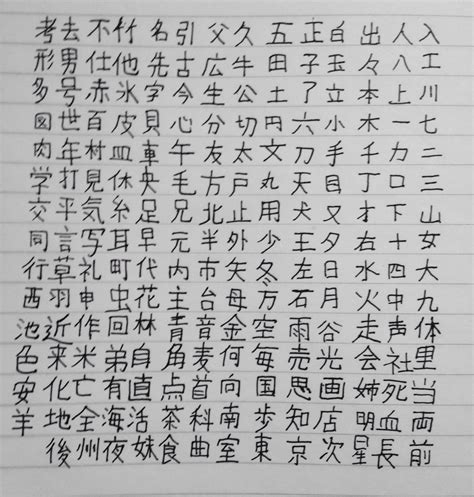 入工川七二三山女大九体里当両前
人八上一力口下十四中声社死血長
出々本木千丁才右水火走会姉明星
白玉立小手目又夕日月谷光画店次
正子了六刀天犬王左石雨売思知京
五田土円文丸用少冬万空毎国歩東
久牛公切太戸止外矢母金何向南室
父広生分友方北半市台音麦首科曲
引古今心午毛兄元内主青角点茶食
名先字貝車央足早代花林自直活妹
竹他氷皮皿休糸耳町虫回弟有海夜
不仕赤百村見気写礼申作米亡全州
去男号世年打平言草羽近来化地後
考形多図肉学交同行西池色安羊